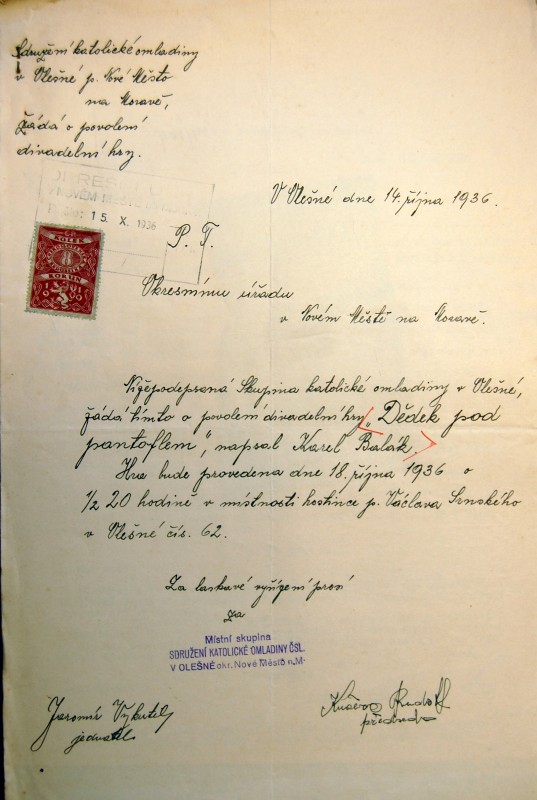 Sdružení katolické omladiny
v Olešné p. Nové Město
na Moravě,
žádá o povolení
divadelní hry.
OKRES
V NOVÉM MĚSTĚ
15. X. 1936
V Olešné dne 14. října 1936.
KOLEK
8
KORUN
P. T.
Okresnímu úřadu
v Novém Městě na Moravě.
Nížepodepsaná Skupina katolické omladiny v Olešné,
žádá tímto o povolení divadelní hry „Dědek pod
pantoflem", napsal Karel Balák.
Hra bude provedena dne 18. října 1936 o
1/2 20 hodině v místnosti hostince p. Václava Srnského
v Olešné čís. 62.
Za laskavé vyřízení prosí
za
Místní skupina
SDRUŽENÍ KATOLICKÉ OMLADINY ČSL.
V OLEŠNÉ okr. Nové Město n.M.
Jaromír
jednatel
Rudolf
předseda